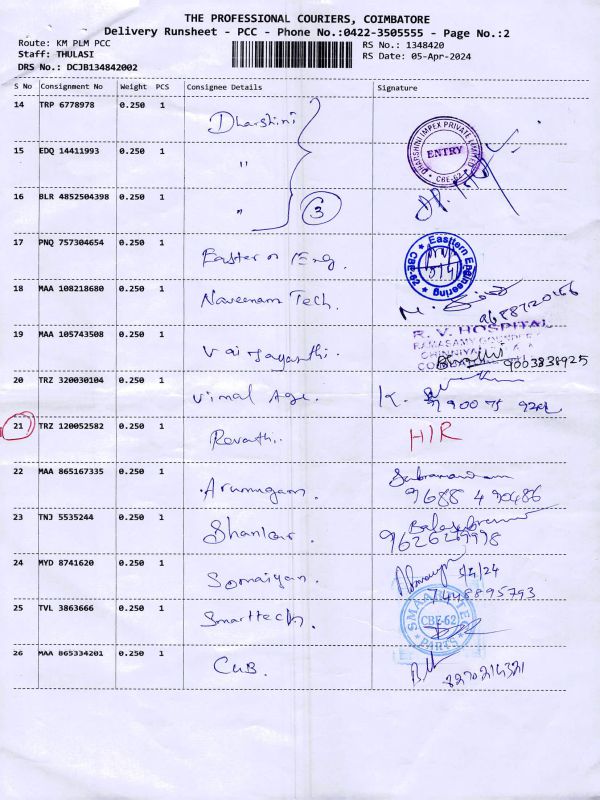 THE PROFESSIONAL COURIERS, COIMBATORE
Delivery Runsheet - PCC - Phone No.:0422-3505555 - Page No.:2
Route: KM PLM PCC RS No.: 1348420
Staff: THULASI RS Date: 05-Apr-2024
DRS No.: DCJB134842002
S No Consignment No Weight PCS Consignee Details Signature
14 TRP 6778978 0.250 1 Dharshini
DHARSHINI IMPEX PRIVATE LIMITED ENTRY CBE-62
15 EDQ 14411993 0.250 1 "
16 BLR 4852504398 0.250 1 " 3
17 PNQ 757304654 0.250 1 Eastern Eng. Eastern Engineering CBE-62
18 MAA 108218680 0.250 1 Naveenam Tech.
19 MAA 105743508 0.250 1 Vaijayanthi. R.V. HOSPITAL
9003838925
20 TRZ 320030104 0.250 1 Vimal Age. K.
21 TRZ 120052582 0.250 1 Revathi. H/R
22 MAA 865167335 0.250 1 Arumugam.
9688490486
23 TNJ 5535244 0.250 1 Shankar.
24 MYD 8741620 0.250 1 Somaiyan. 5/4/24
7448895793
25 TVL 3863666 0.250 1 Smarttech. CBE-62 PARTS
26 MAA 865334201 0.250 1 CUB.